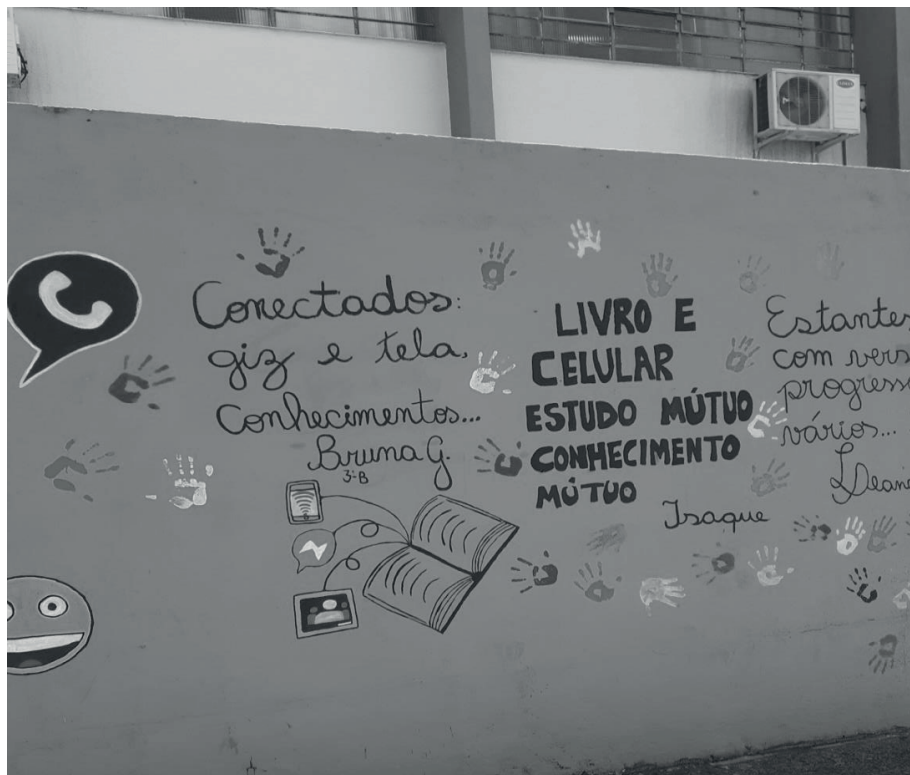 Conectados:
giz e tela,
Conhecimentos...
Bruna G.
3ºB
LIVRO E
CELULAR
ESTUDO MÚTUO
CONHECIMENTO
MÚTUO
Isaque
Estantes
com vers
progress
vários...